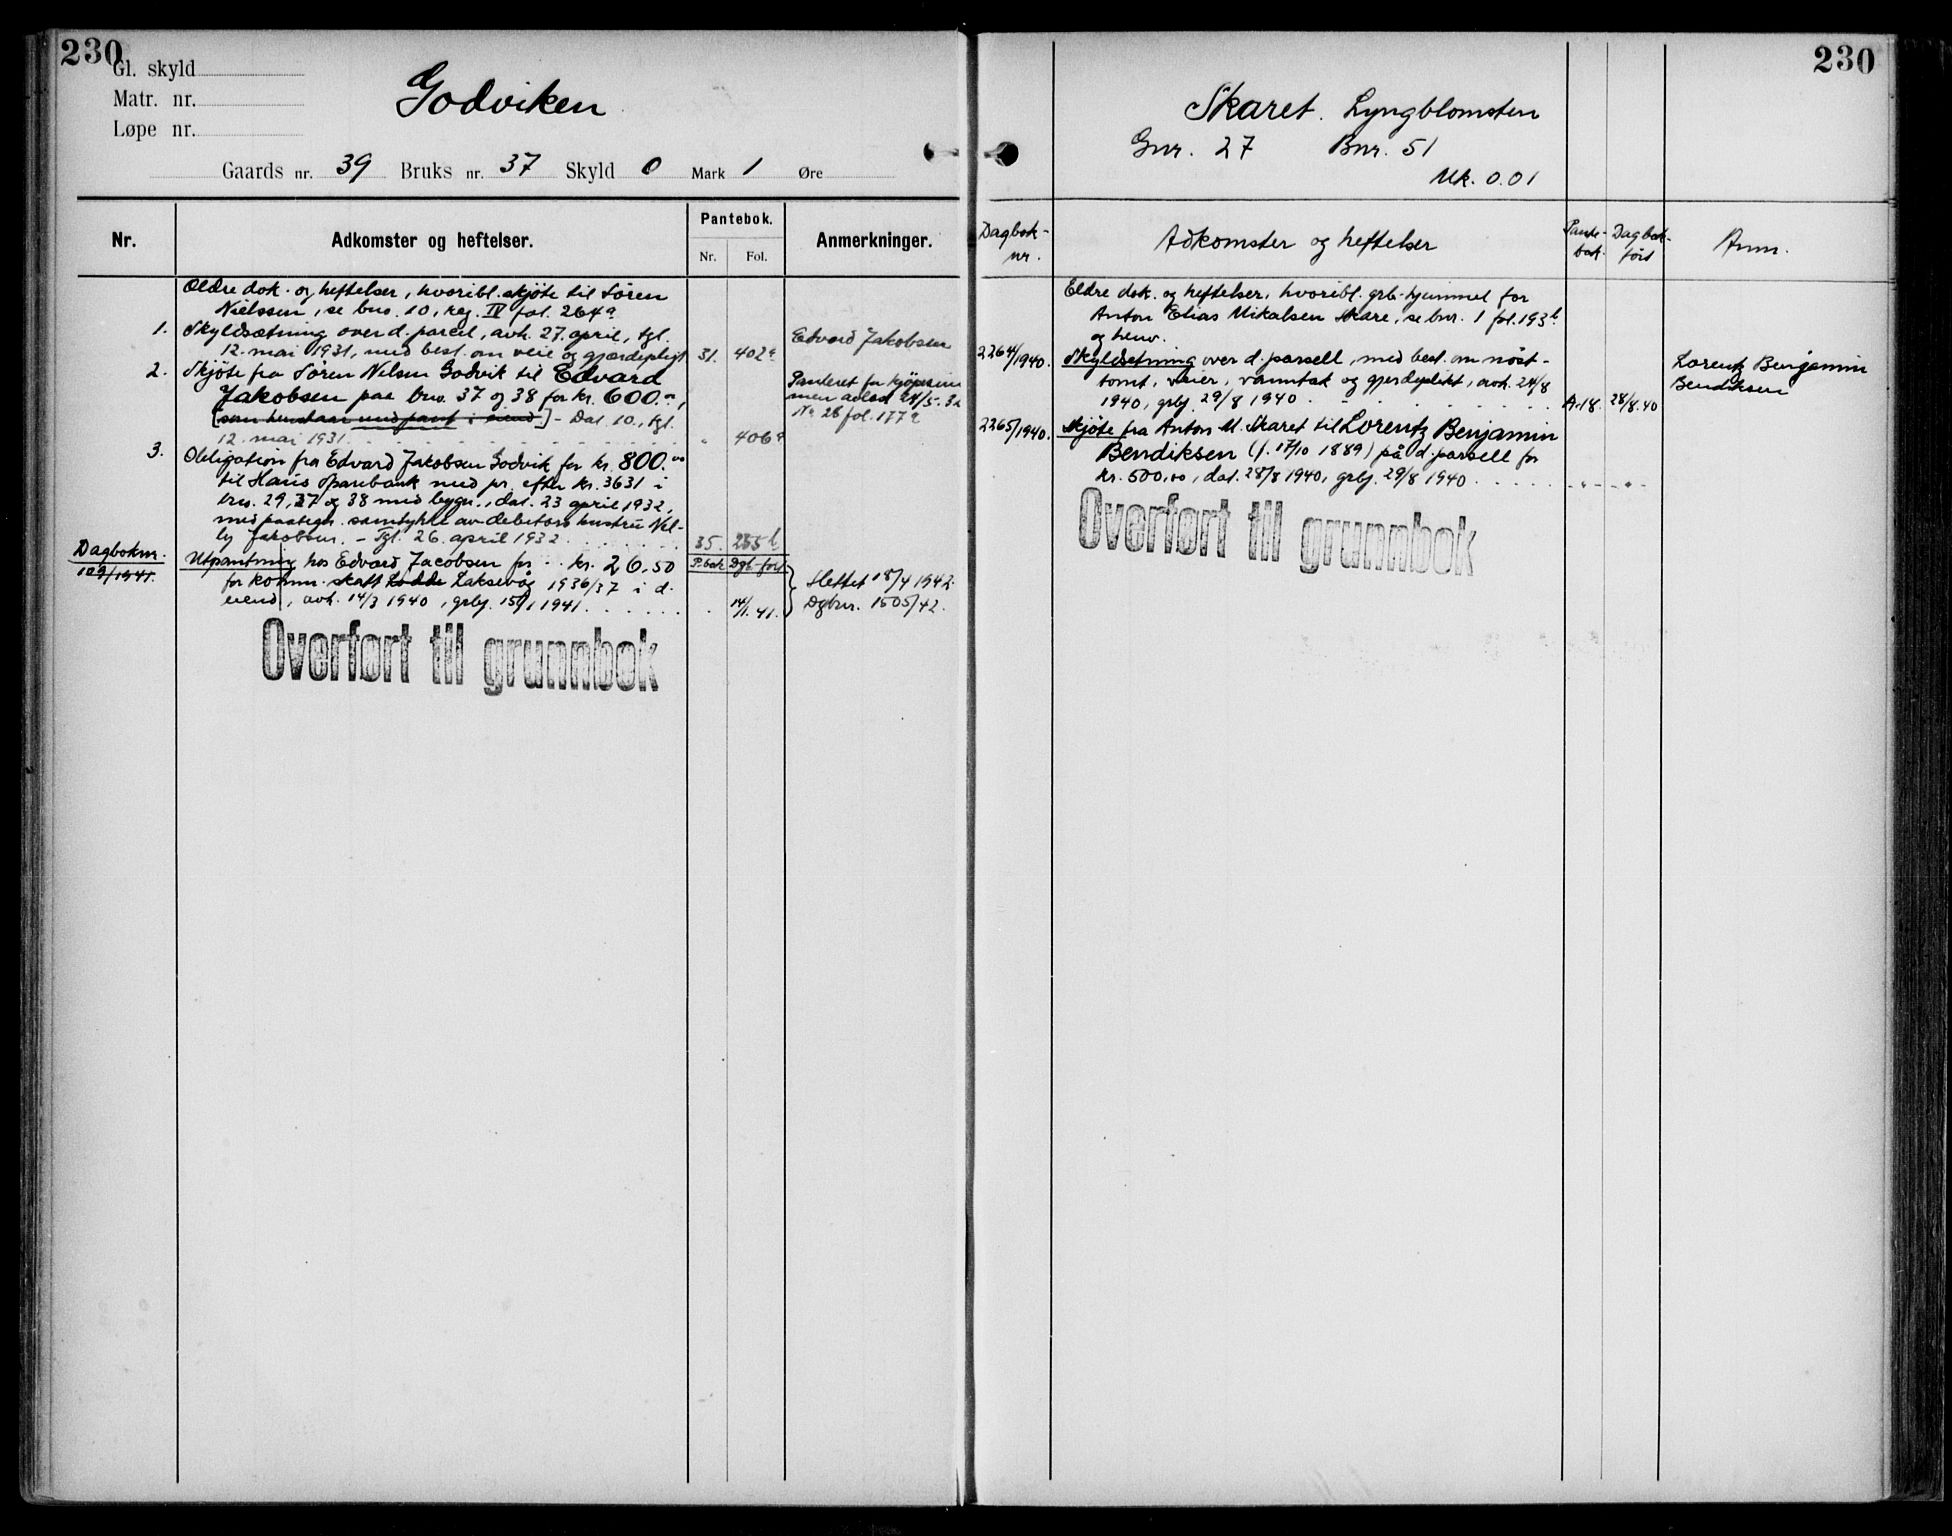 230
Gl. skyld
Matr. nr.
Løpe nr.
Godviken
Gaards nr. 39 Bruks nr. 37 Skyld 0 Mark 1 Øre
Nr.
Adkomster og heftelser.
Pantebok.
Nr. Fol.
Anmerkninger.
Ældre dok. og heftelser, hvoribl. skjöte til Sören
Nielssen, se bno. 10, reg. IV fol. 264a
1. Skyldsætning over d. parcel, avh. 27. april, tgl.
12. mai 1931, med best. om veie og gjærdepligt 31. 402a
Edvard Jakobsen
2. Skjöte fra Sören Nilsen Godvik til Edvard
Jakobsen paa bno. 37 og 38 for kr. 600.-,
[som henstaar med pant i eiend.] - Dat. 10., tgl.
12. mai 1931. " 406a
Panteret for kjöpesum
men avlest 24/5-32
No 26 fol. 177a
3. Obligation fra Edvard Jakobsen Godvik for kr. 800.00
til Haus Sparebank med pr. efter kr. 3631 i
bno. 29, 37 og 38 med bygn., dat. 23 april 1932,
med paategn. samtykke av debitors hustru Nel-
ly Jakobsen. - Tgl. 26. april 1932 35. 235b
Dagboknr.
109/1941.
P.bok Dgb-ført
Utpantning hos Edvard Jacobsen for kr. 26,50
for komm. skatt Laksevåg 1936/37 i d.
eiend., avh. 14/3 1940, grbf. 15/1 1941 14/1.41.
Slettet 18/4 1942.
Dgbnr. 1505/42.
Overført til grunnbok
230
Skaret. Lyngblomsten
Gnr. 27 Bnr. 51
Mk. 0.01
Dagbok-
nr.
Adkomster og heftelser
Pante-
bok.
Dagbok-
ført
Anm.
Eldre dok. og heftelser, hvoribl. grb-hjemmel for
Anton Elias Mikalsen Skare, se bnr. 1 fol. 193b
og henv.
2264/1940. Skyldsetning over d. parsell, med best. om nöst-
tomt, veier, vanntak og gjerdeplikt, avh. 24/8
1940, grbf. 29/8 1940 A.18. 28/8.40
Lorentz Benjamin
Bendiksen
2265/1940. Skjöte fra Anton M. Skaret til Lorentz Benjamin
Bendiksen (f. 17/10 1889) på d. parsell for
kr. 500,00, dat. 28/8 1940, grbf. 29/8 1940 " - " -
Overført til grunnbok